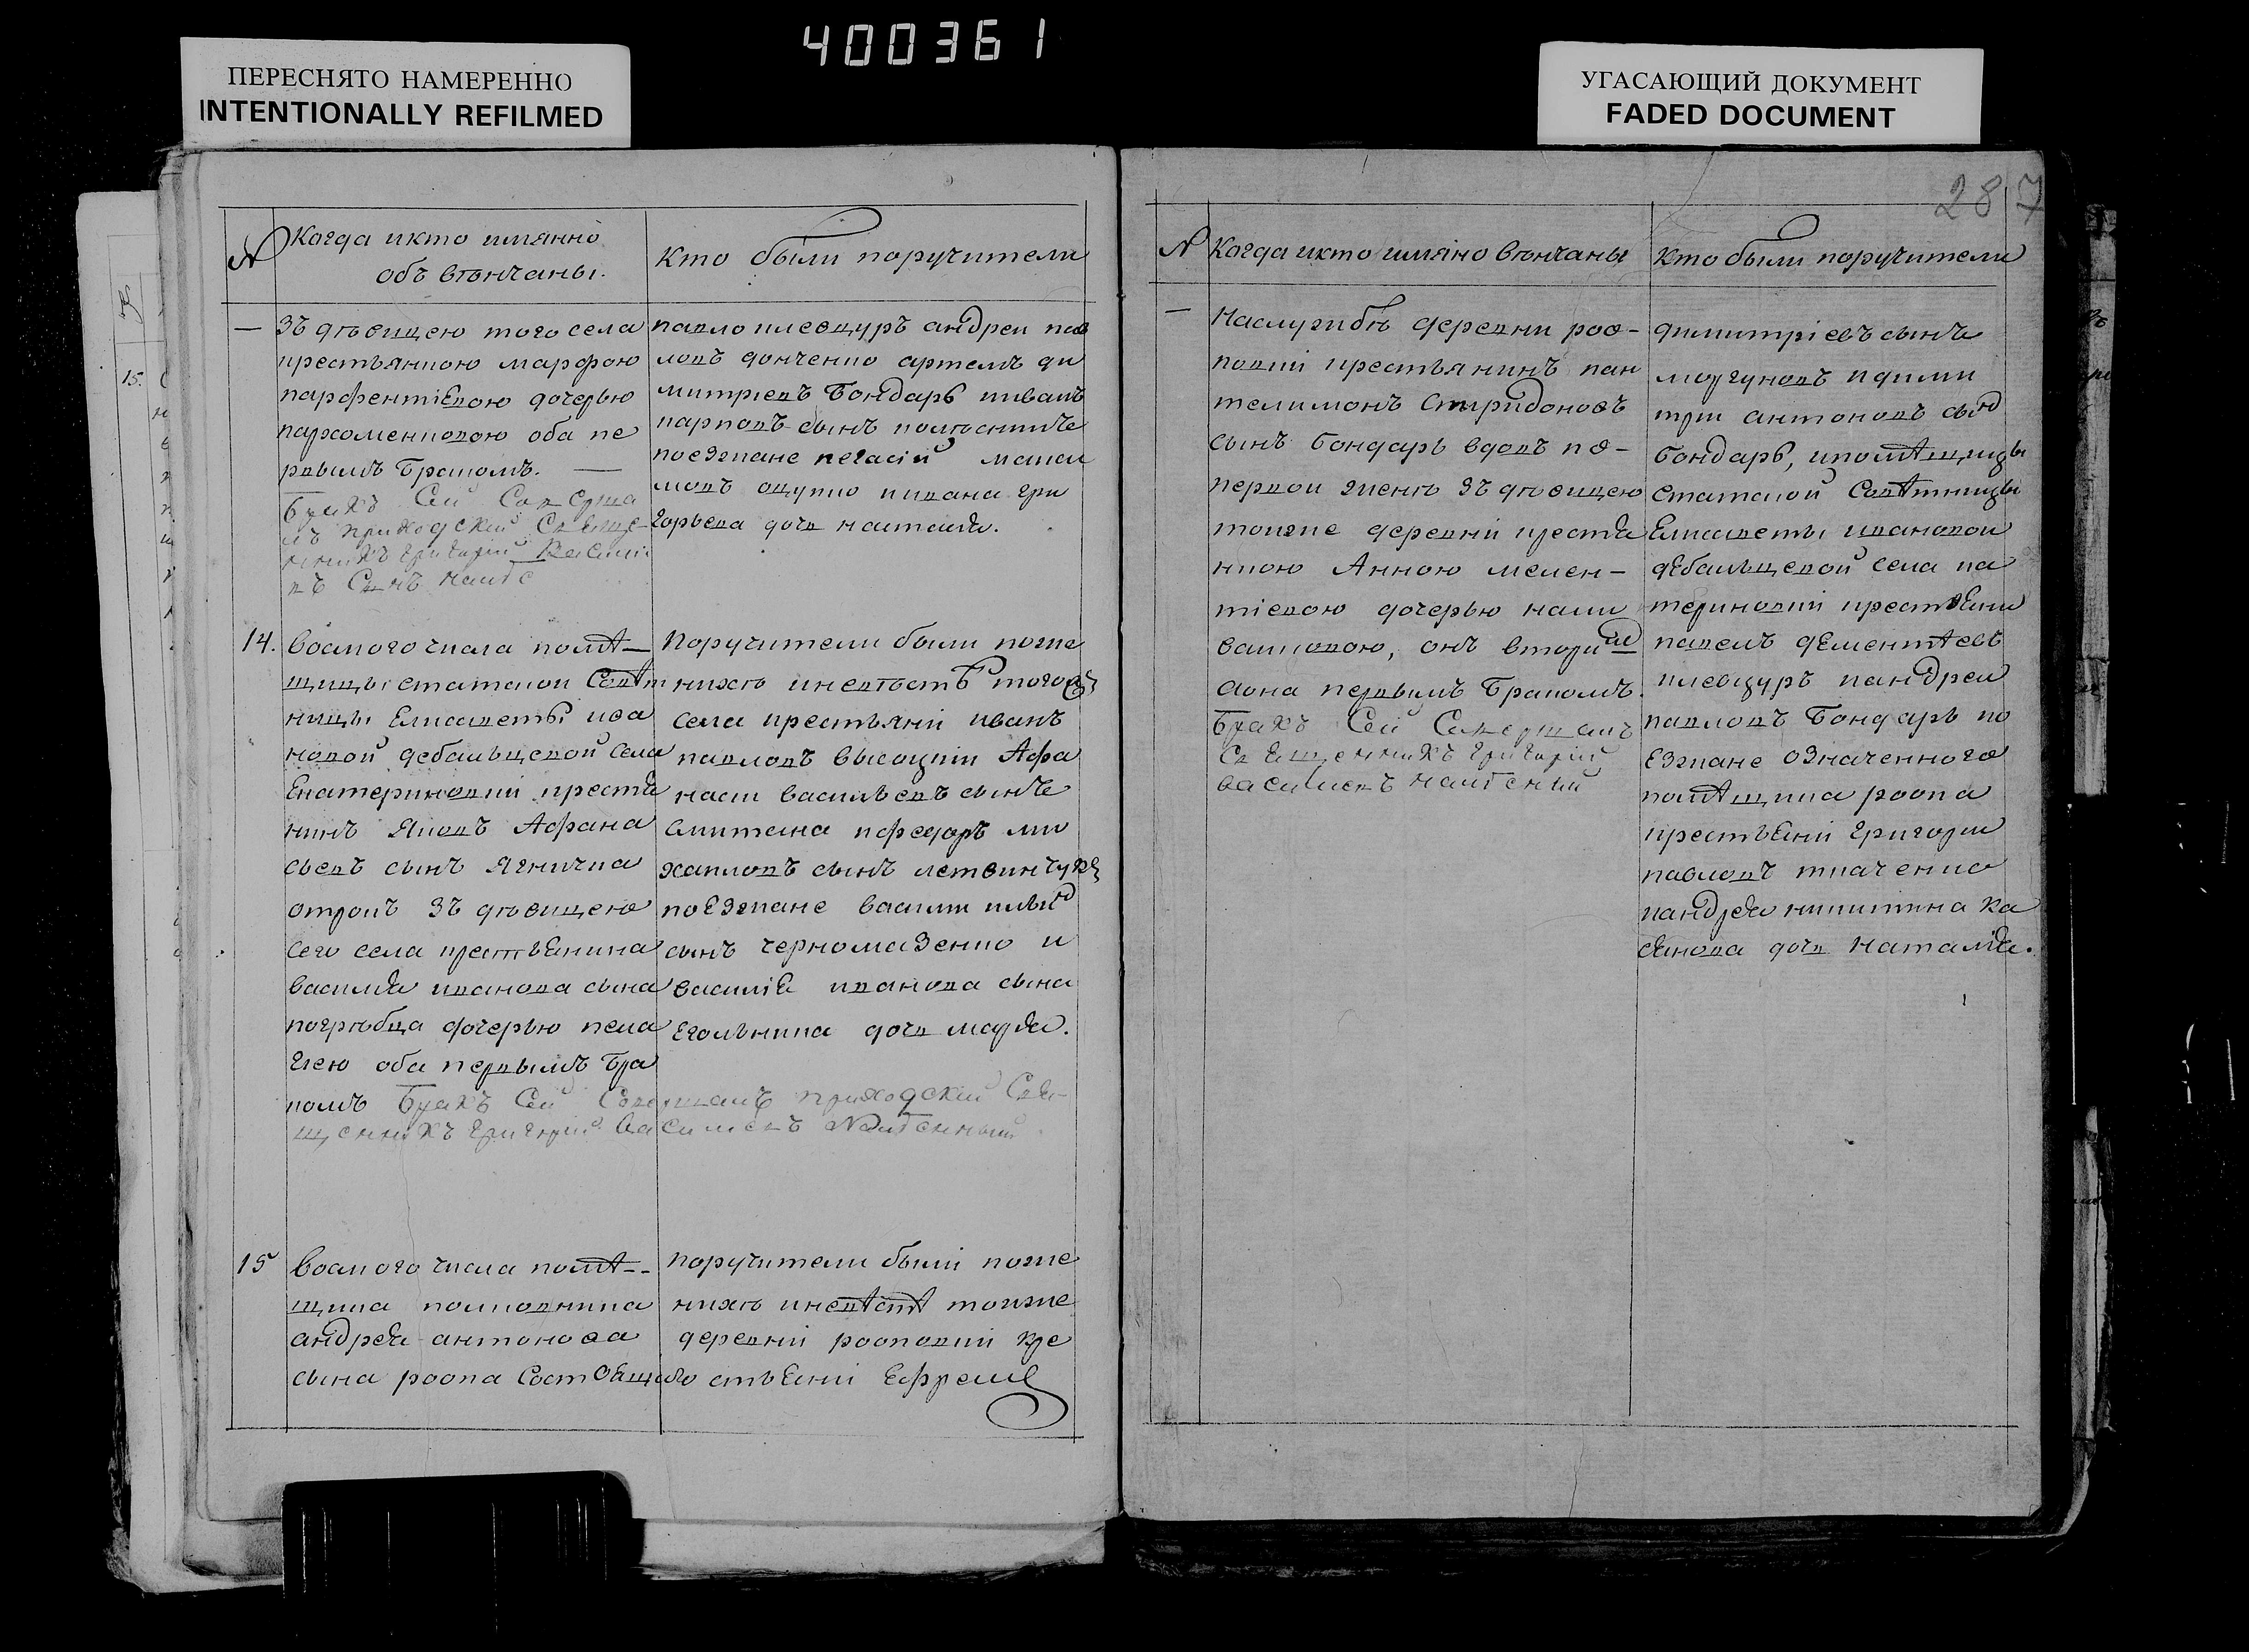 400361
ПЕРЕСНЯТО НАМЕРЕННО
INTENTIONALLY REFILMED
УГАСАЮЩИЙ ДОКУМЕНТ
FADED DOCUMENT
287
№
Когда икто имянно
объ вѣнчаны.
Кто были поручители
—
зъ дѣвицею того села
крестьянкою марфою
парфентіевою дочерью
пархоменковою оба пе
рвымъ бракомъ. —
Бракъ Сей Соверша
лъ приходский Свяще-
нникъ григорій Васили
въ Сынъ
павло шевцуръ андреи пав
ловъ донченко артемъ ди
митріевъ бондарь иивамъ
карповъ сынъ
поезжане
мовъ оцупко иивана гри
горьева дочь наталія.
14.
восмого числа помѣ—
щицы статской Совѣт
ницы Елисаветы ива
новой дебальцевой села
Екатериновки крестья
нинъ Яковъ Афана
сьевъ сынъ Ягничка
отрокъ зъ дѣвицею
сего села крестьянина
василія иванова сына
погрѣбца дочерью пела
гіею оба первымъ бра
комъ Бракъ Сей Совершалъ приходский Свя-
щенникъ григорій Василиевъ
Поручители были поже
нихѣ иневѣстѣ того
села крестьяні иванъ
павловъ высоцкіи Афа
насіи васильевъ сынъ
Смитана ифедоръ ми
хаиловъ сынъ летвинчукъ
поезжане василіи
сынъ черномазенко и
василія иванова сына
Еголника дочь марія.
15
восмого числа помѣ--
щика полковника
андрея антонова
сына роопа Состоящи
поручители были поже
нихѣ иневѣстѣ тоижe
деревні рооповки кре
стьяні Ефремъ
№
Когда икто имяно вѣнчаны
Кто были поручители
—
Наслужбѣ деревни роо-
повкі крестьянинъ пан
телимонъ Спиридоновъ
сынъ бондарь вдовъ по-
первой женѣ зъ дѣвицею
тоижe деревні крестья
нкою Анною мелен-
тіевою дочерью кали
ваиковою, онъ вторим
аона первымъ бракомъ.
Бракъ Сей Совершалъ
Священникъ григорій
василиевъ
димитріевъ сынъ
моргуновъ идими
трии антоновъ сын
бондарь, ипомѣщицы
статской Совѣтницы
Елисаветы ивановой
дебальцевой села ка
териновкі крестьяни
павелъ дементьевъ
шевцуръ иандреи
павловъ бондарь по
езжане означенного
помѣщика роопа
крестьяні григории
павловъ ткаченко
иандрея никитина ка
сянова дочь наталія.